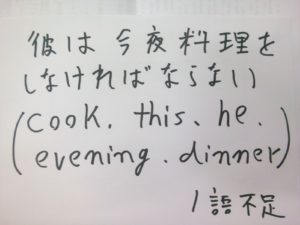 彼は今夜料理を
しなければならない
(cook. this、he.
evening.dinner)
1語不足